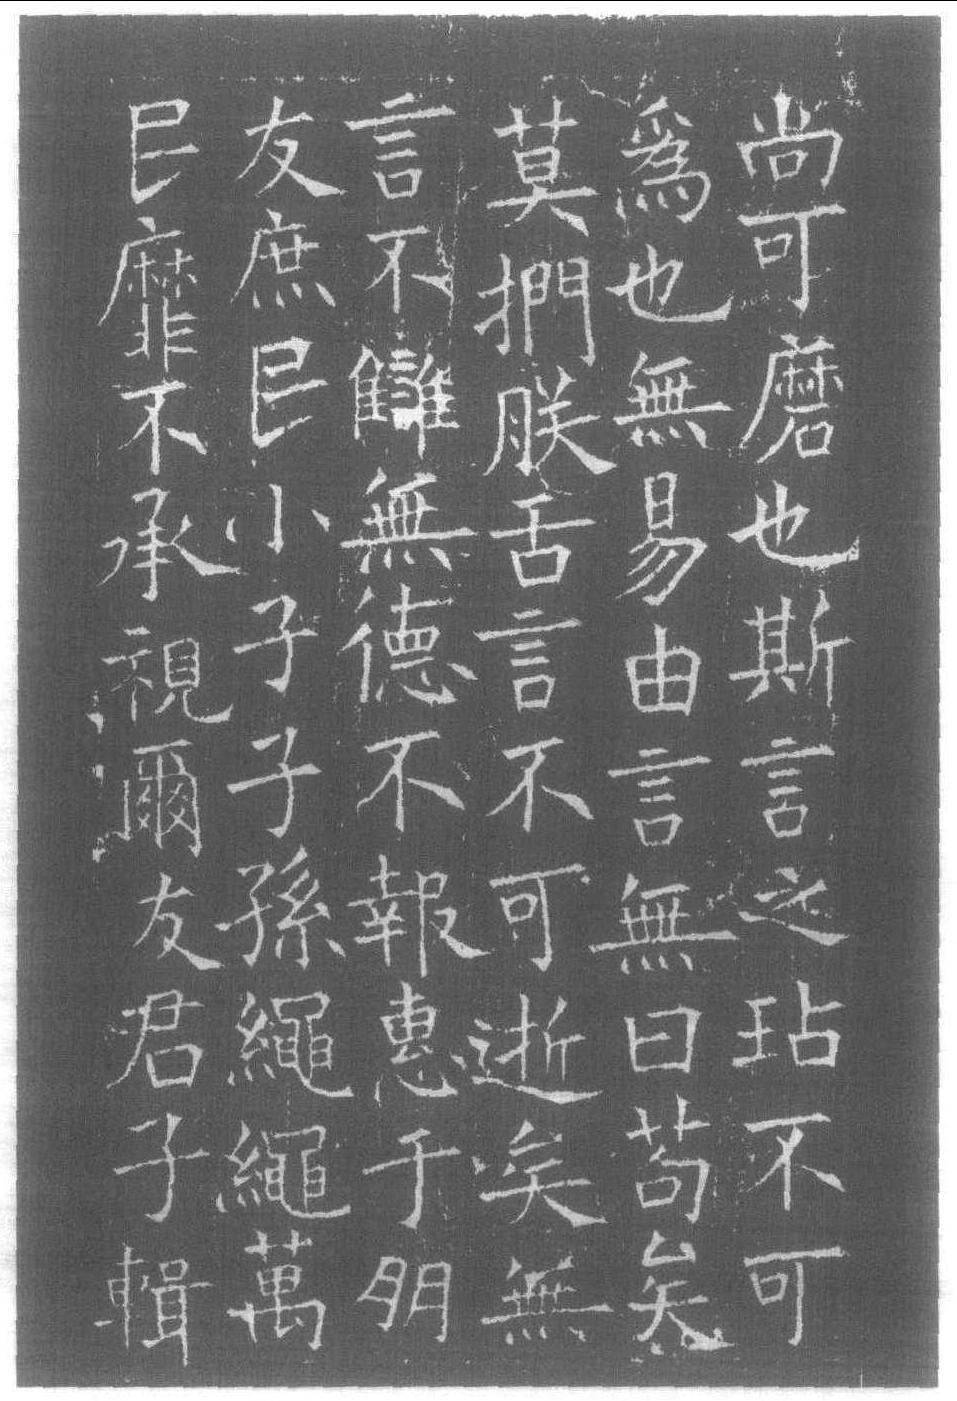 尚可磨也斯言之玷不可
爲也無易由言無曰苟矣
莫捫朕舌言不可逝矣無
言不讎無德不報惠于朋
友庶民小子子孫繩繩萬
民靡不承視爾友君子輯